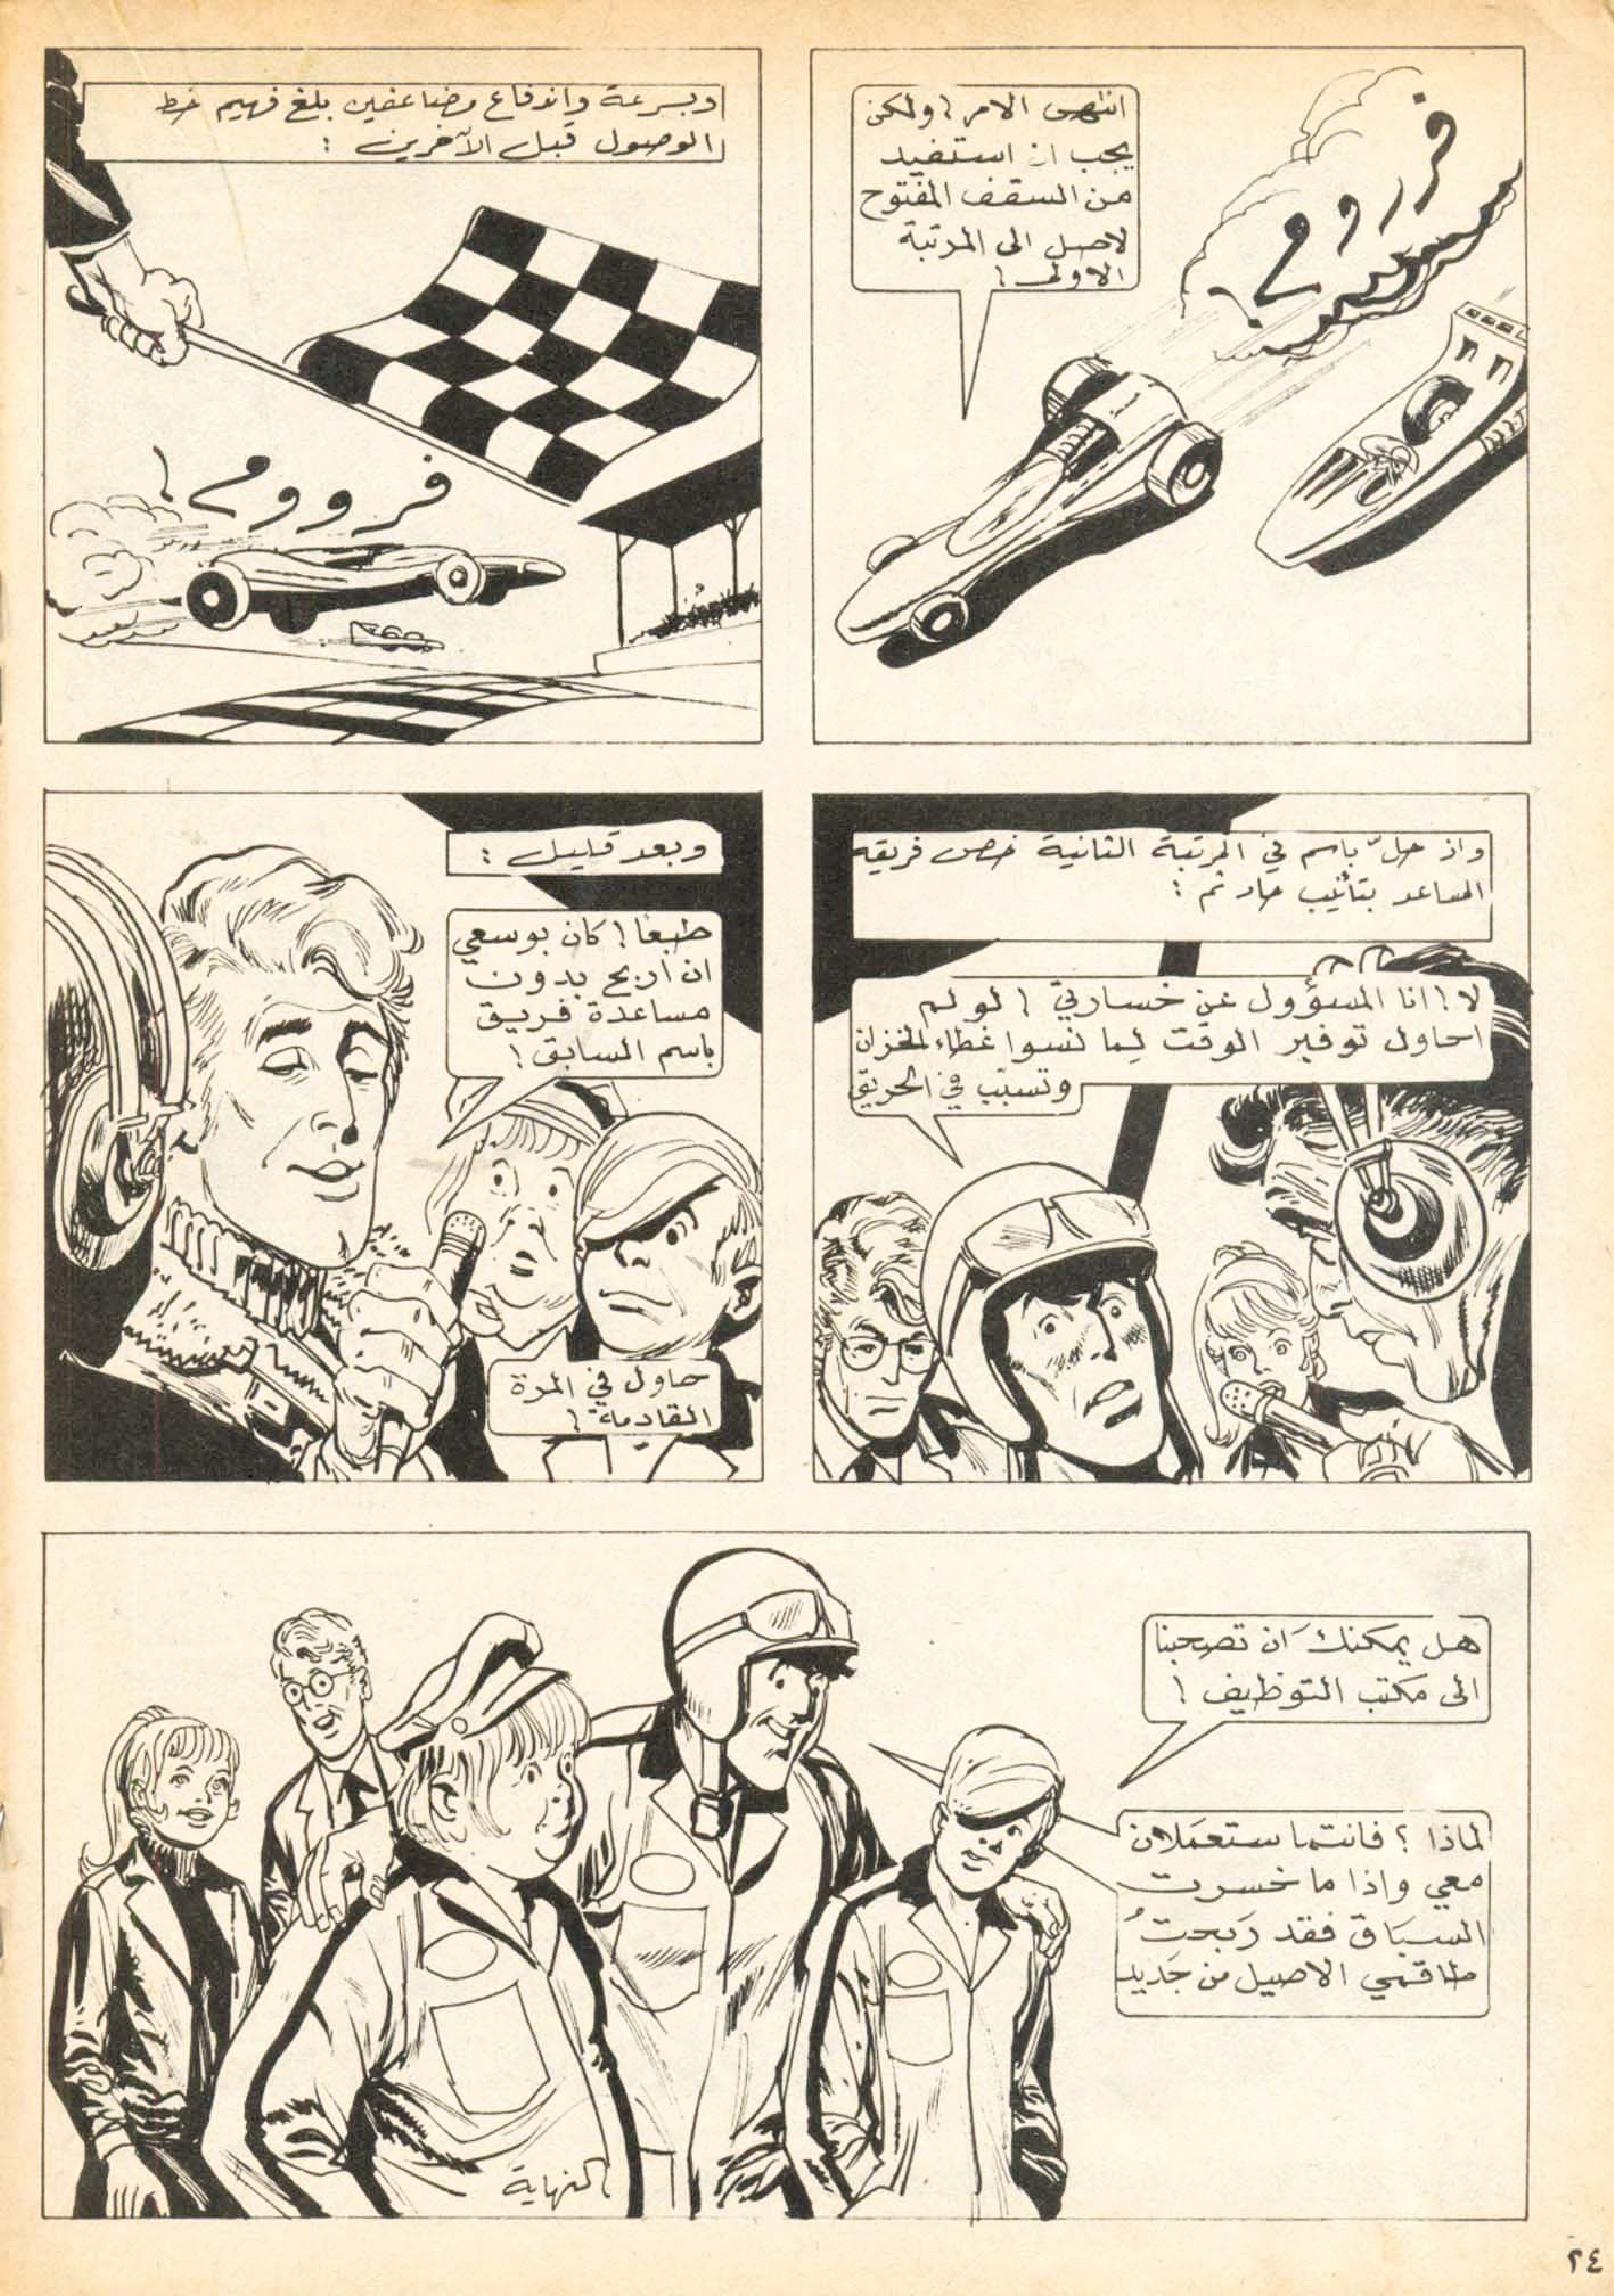 انتهى الامر ! ولكن
يجب ان استفيد
من السقف المفتوح
لاصل الى المرتبة
الاولى !
فرروم !
وبسرعة واندفاع مضاعفين بلغ فهيم خط
الوصول قبل الآخرين :
فرووم !
واذ حلّ باسم في المرتبة الثانية خص فريقه
المساعد بتأنيب حاد ثم :
لا ! انا المسؤول عن خسارتي ! لو لم
احاول توفير الوقت لما نسوا غطاء الخزان
وتسبّب في الحريق
وبعد قليل :
طبعا ! كان بوسعي
ان اربح بدون
مساعدة فريق
باسم السابق !
حاول في المرة
القادمة !
هل يمكنك ان تصحبنا
الى مكتب التوظيف !
لماذا ؟ فانتما ستعملان
معي واذا ما خسرت
السباق فقد رَبحتُ
طاقمي الاصيل من جَديد
النهاية
٢٤